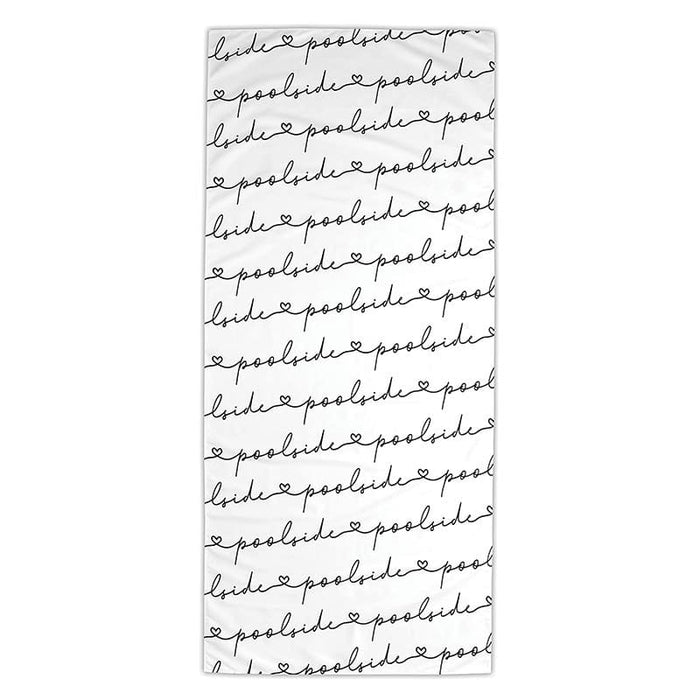 lside poolside poo
poolside poolside
lside poolside pool
poolside poolside
lside poolside pool
poolside poolside
lside poolside pool
poolside poolside
lside poolside pool
poolside poolside
lside poolside pool
poolside poolside
lside poolside pool
poolside poolside
lside poolside pool